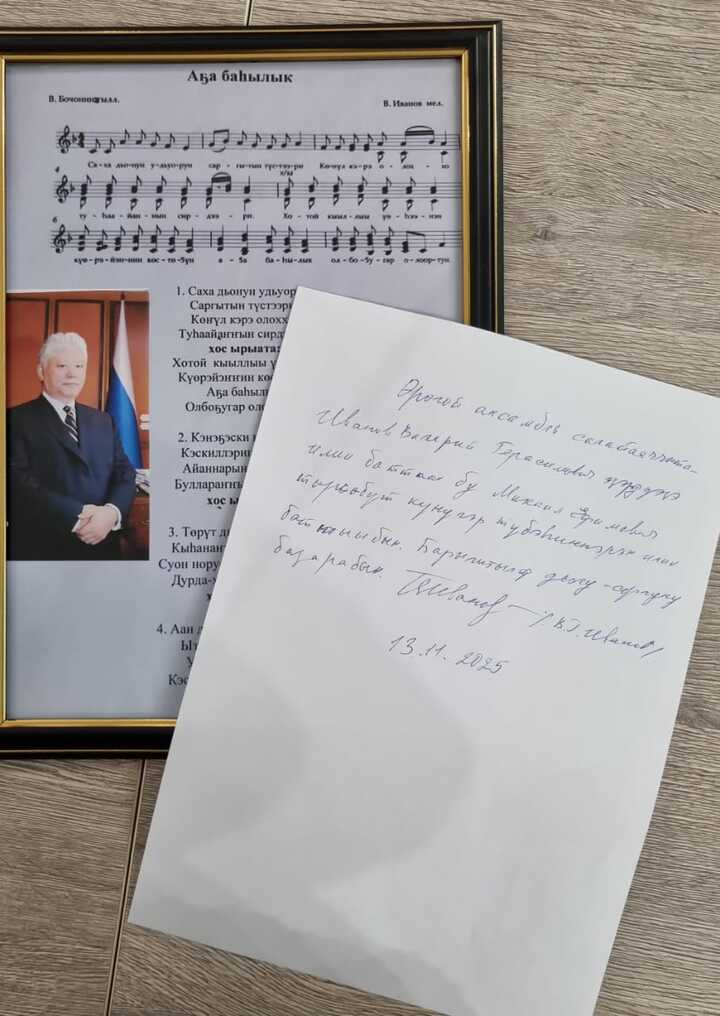 Аҕа баһылык
В. Бочоннин тыл.
В. Иванов мел.
Са-ха дьо-нун у-дьуо-рун сар-гы-тын түс-тээ-ри Көҥүл кэ-рэ о-лоҕ-ю
4
х/ы
ту-һаа-йан-нын сир-дээ-ри. Хо-той кыыл-лыы үө-һээ-нэн
6
күө-рэ-йэн-нин көс-төҕүн а-ҕа ба-һы-лык ол-бо-ҕу-гар о-лоор-тун.
1. Саха дьонун удьуор
Саргытын түстээри
Көҥүл кэрэ олохх
Туһаайаҥҥын сирд
хос ырыата:
Хотой кыыллыы ү
Күөрэйэҥҥин көс
Аҕа баһыл
Олбоҕугар оло
2. Кэнэҕэски
Кэскиллэри
Айаннарын
Буллараҥҥы
хос ы
3. Төрүт д
Кыһанан
Суон нору
Дурда-х
4. Аан
Ыт
Кэс
Өрөгөй ансамбль салайааччыта-
Иванов Валерий Герасимович
илии баттаан бу Михаил Ефимович
төрөөбүт күнүгэр түбэһиннэрэн илии
баттыыбын. Барыгытыгар дьолу-соргуну
баҕарабын. / В.Г. Иванов /
13.11.2025